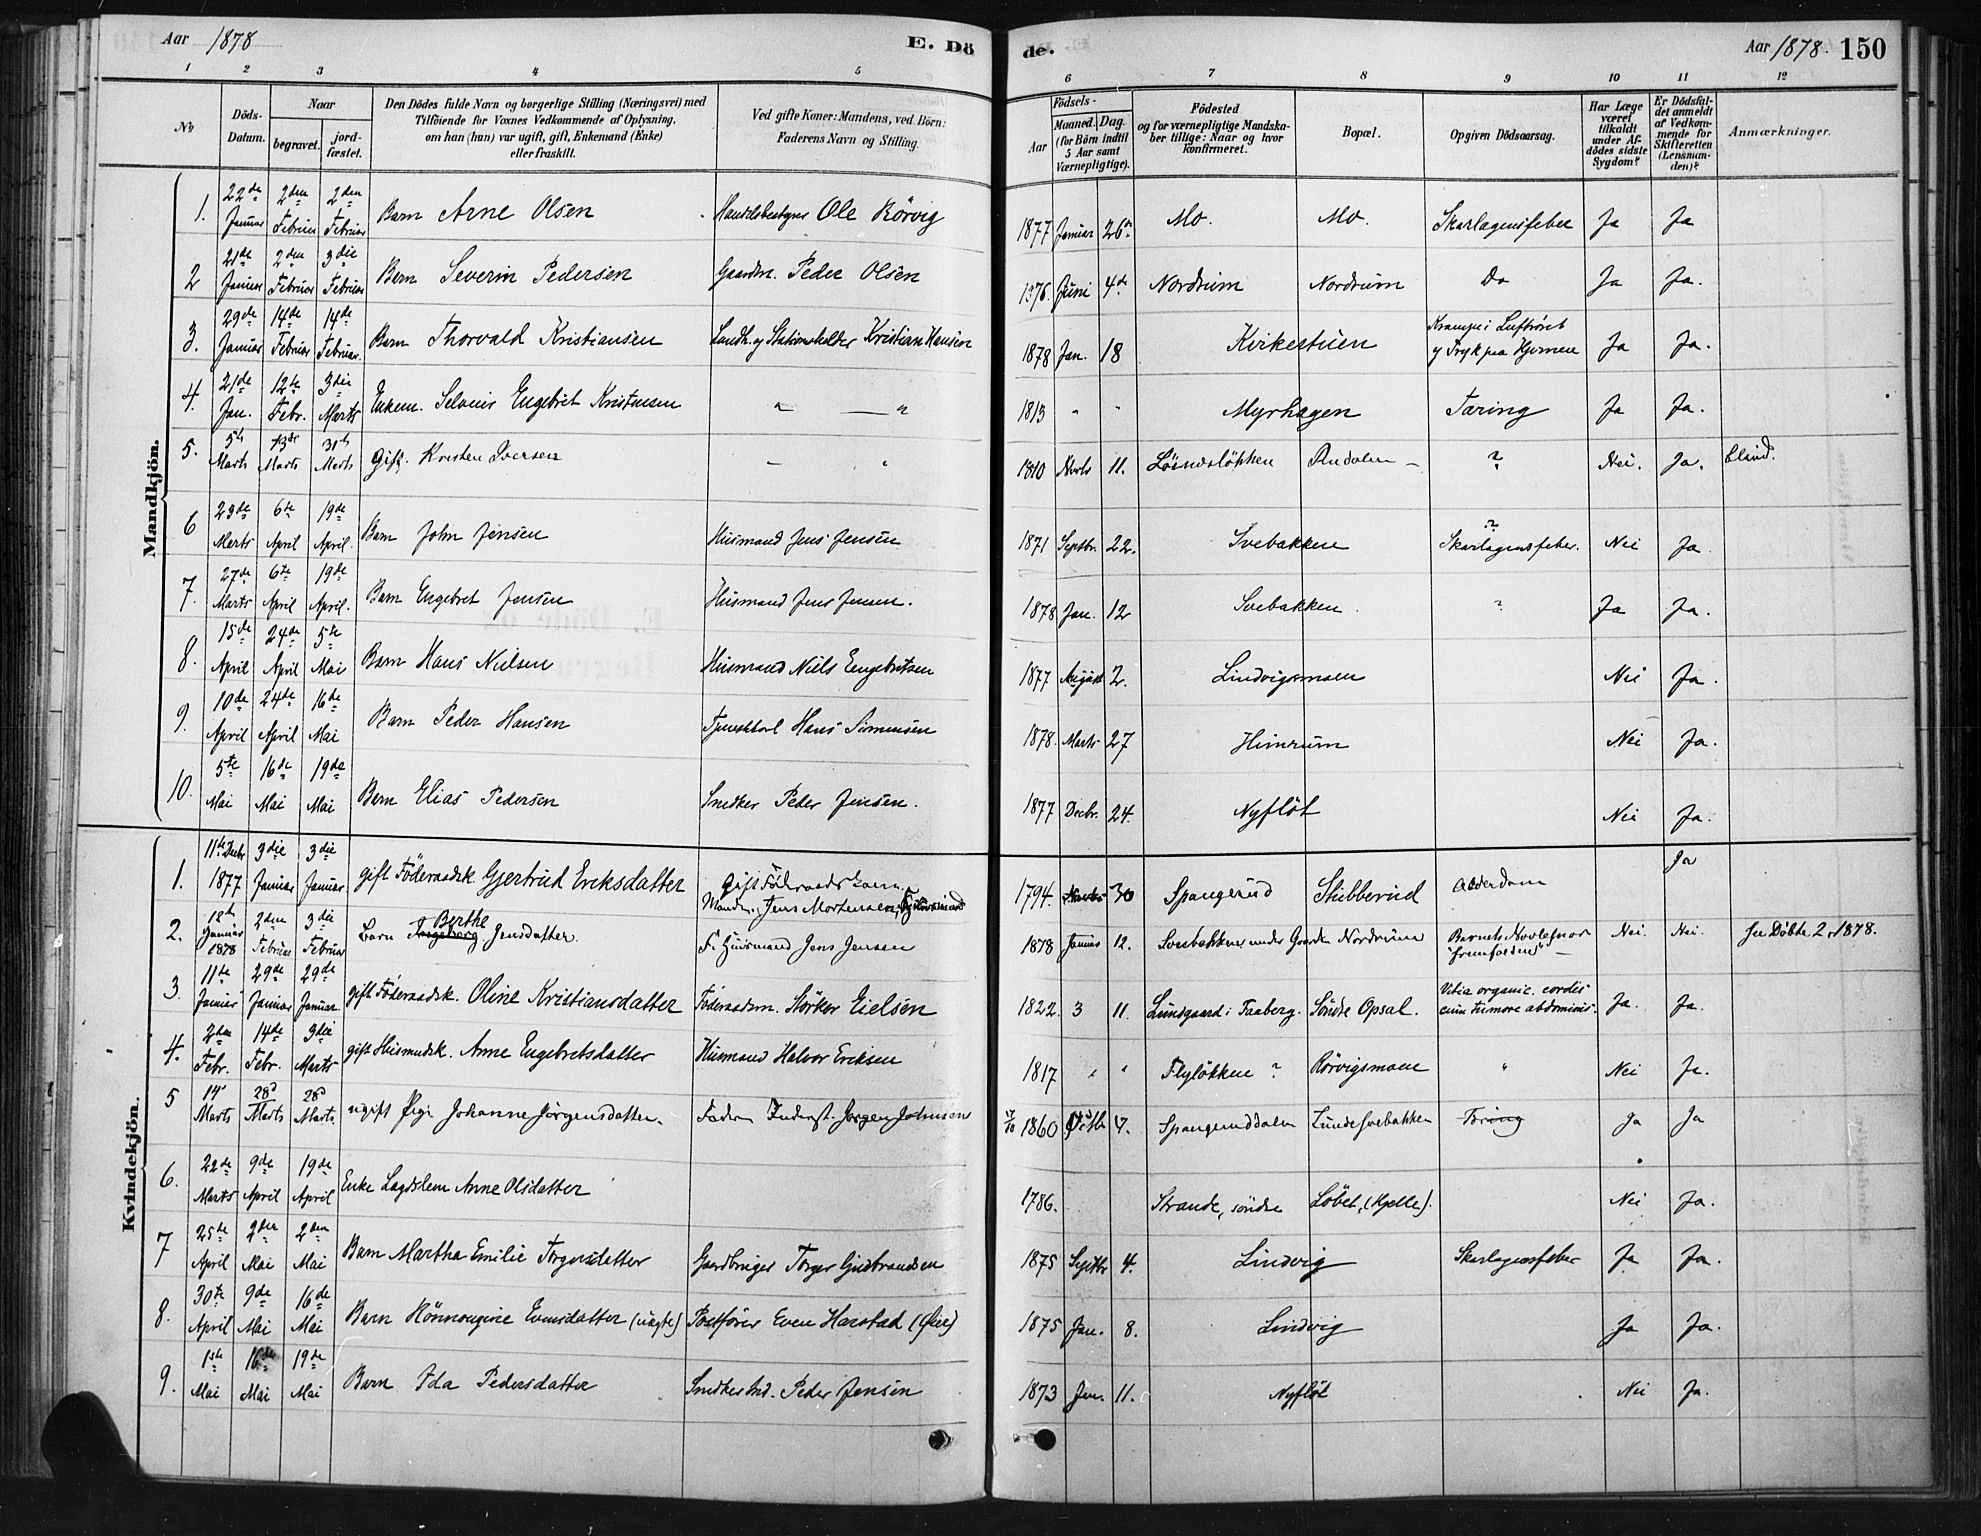 Aar 1878
E. Dö
de.
Aar 1878. 150
1 2 3 4 5 6 7 8 9 10 11 12
No
Döds-Datum.
Naar
begravet.
jord-fæstet.
Den Dödes fulde Navn og borgerlige Stilling (Næringsvei) med
Tilföiende for Voxnes Vedkommende af Oplysning,
om han (hun) var ugift, gift, Enkemand (Enke)
eller fraskilt.
Ved gifte Koner: Mandens, ved Börn:
Faderens Navn og Stilling.
Födsels-
Aar
Maaned. Dag.
(for Börn indtil
5 Aar samt
Værnepligtige).
Födested
og for værnepligtige Mandska-
ber tillige: Naar og hvor
konfirmeret.
Bopæl.
Opgiven Dödsaarsag.
Har Læge
været
tilkaldt
under Af-
dödes sidste
Sygdom?
Er Dödsfal-
det anmeldt
af Vedkom-
mende for
Skifteretten
(Lensman-
den)?
Anmærkninger.
Mandkjön.
1. 22de Januar 2den Februar 2den Februar Barn Arne Olsen Handelsbestyrer Ole Rörvig 1877 Januar 26de Mo. Mo. Skarlagensfeber Ja Ja
2 21de Januar 2den Februar 3die Februar Barn Severin Pedersen Gaardm. Peder Olsen 1876. Juni 4de Nordrum Nordrum Do Ja Ja.
3. 29de Januar 14de Februar 14de Februar. Barn Thorvald Kristiansen Landh. og Stationsholder Kristian Hansen 1878 Jan. 18 Kirkestuen Krampe i Luftröret og Tryk paa Hjernen Ja Ja.
4. 21de Jan. 12te Febr. 3die Marts Enkem. Selveier Engebret Kristensen " — " 1813 " " Myrhagen Tæring Ja Ja.
5. 5te Marts 13de Marts 31te Marts Gift. Kresten Iversen — " 1810 11. ? Nei. Ja. blind.
6 23de Marts 6te April 19de April. Barn John Jensen Husmand Jens Jensen 1871 Septbr. 22. Svebakken ? Skarlagensfeber. Nei Ja
7. 27de Marts 6te April 19de April. Barn Engebret Jensen Husmand Jens Jensen. 1878 Jan. 12 Svebakken. ? Ja Ja.
8. 15de April 24de April 5te Mai Barn Hans Nielsen Husmand Niels Engebretsen 1877 August 2. Lindvigsmoen Nei Ja.
9. 10de April 24de April 16de Mai Barn Peder Hansen Tjenestkarl Hans Simensen 1878. Marts 27 Himrum Nei Ja.
10. 5te Mai 16de Mai 19de Mai Barn Elias Pedersen Snedker Peder Jensen. 1877 Decbr. 24. Nyflöt Nei Ja.
Kvindekjön.
1. 11te Decbr 1877 3die Januar 3die Januar gift Föderaadsk. Gjertrud Ericksdatter Gift Föderaadskone. Manden: Jens Mortensen, 1794. 30 Spangrud Stubberud Alderdom Ja
2. 12te Januar 1878 2den Februar 3die Februar Barn Ingeborg Berthe Jensdatter. F. Huusmand Jens Jensen 1878 Januar 12. Svebakken under Gaarden Nordrum Nei. Nei. See Döbte 2. 1878.
3. 11te Januar 29de Januar 29de Januar. gift Föderaadsk. Oline Kristiansdatter Föderaadsm. Störker Eielsen 1822. 3 11. Lundgaard i Faaberg. Söndre Opsal. Vitia organic. cordis cum tumore abdominis. Ja. Ja.
4. 2den Febr. 14de Febr. 3die Marts gift Husmdsk. Anne Engebretsdatter Husmand Halvor Ericksen 1817 " " Flylökken ? Rörvigsmoen " Nei Ja.
5 14d Marts 28d Marts 28d Marts. ugift Pige Johanne Jörgensdatter. Fader Inderst. Jörgen Johnsen 17/10 1860 Spangruddalen Lunde Svebakken Tæring Ja Ja
6. 22de Marts 9de April 19de April Enke Lægdslem Anne Olsdatter 1786. Strande, söndre Löbet, (Kjelle). Nei Ja.
7 25de April 2den Mai 2den Mai Barn Martha Emilie Torgersdatter Gaardbruger Torger Gudbrandsen 1875 Septbr 4. Lindvig Skarlagensfeber Ja Ja.
8. 30te April 9de Mai 16de Mai Barn Rönnougine Evensdatter (uægte) Postförer Even Harstad (Öier) 1875 Jan. 8. Lindvig Ja Ja.
9. 1ste Mai 16de Mai 19de Mai Barn Ida Pedersdatter Snedker Ind. Peder Jensen 1873 Jan. 11. Nyflöt Nei Ja.